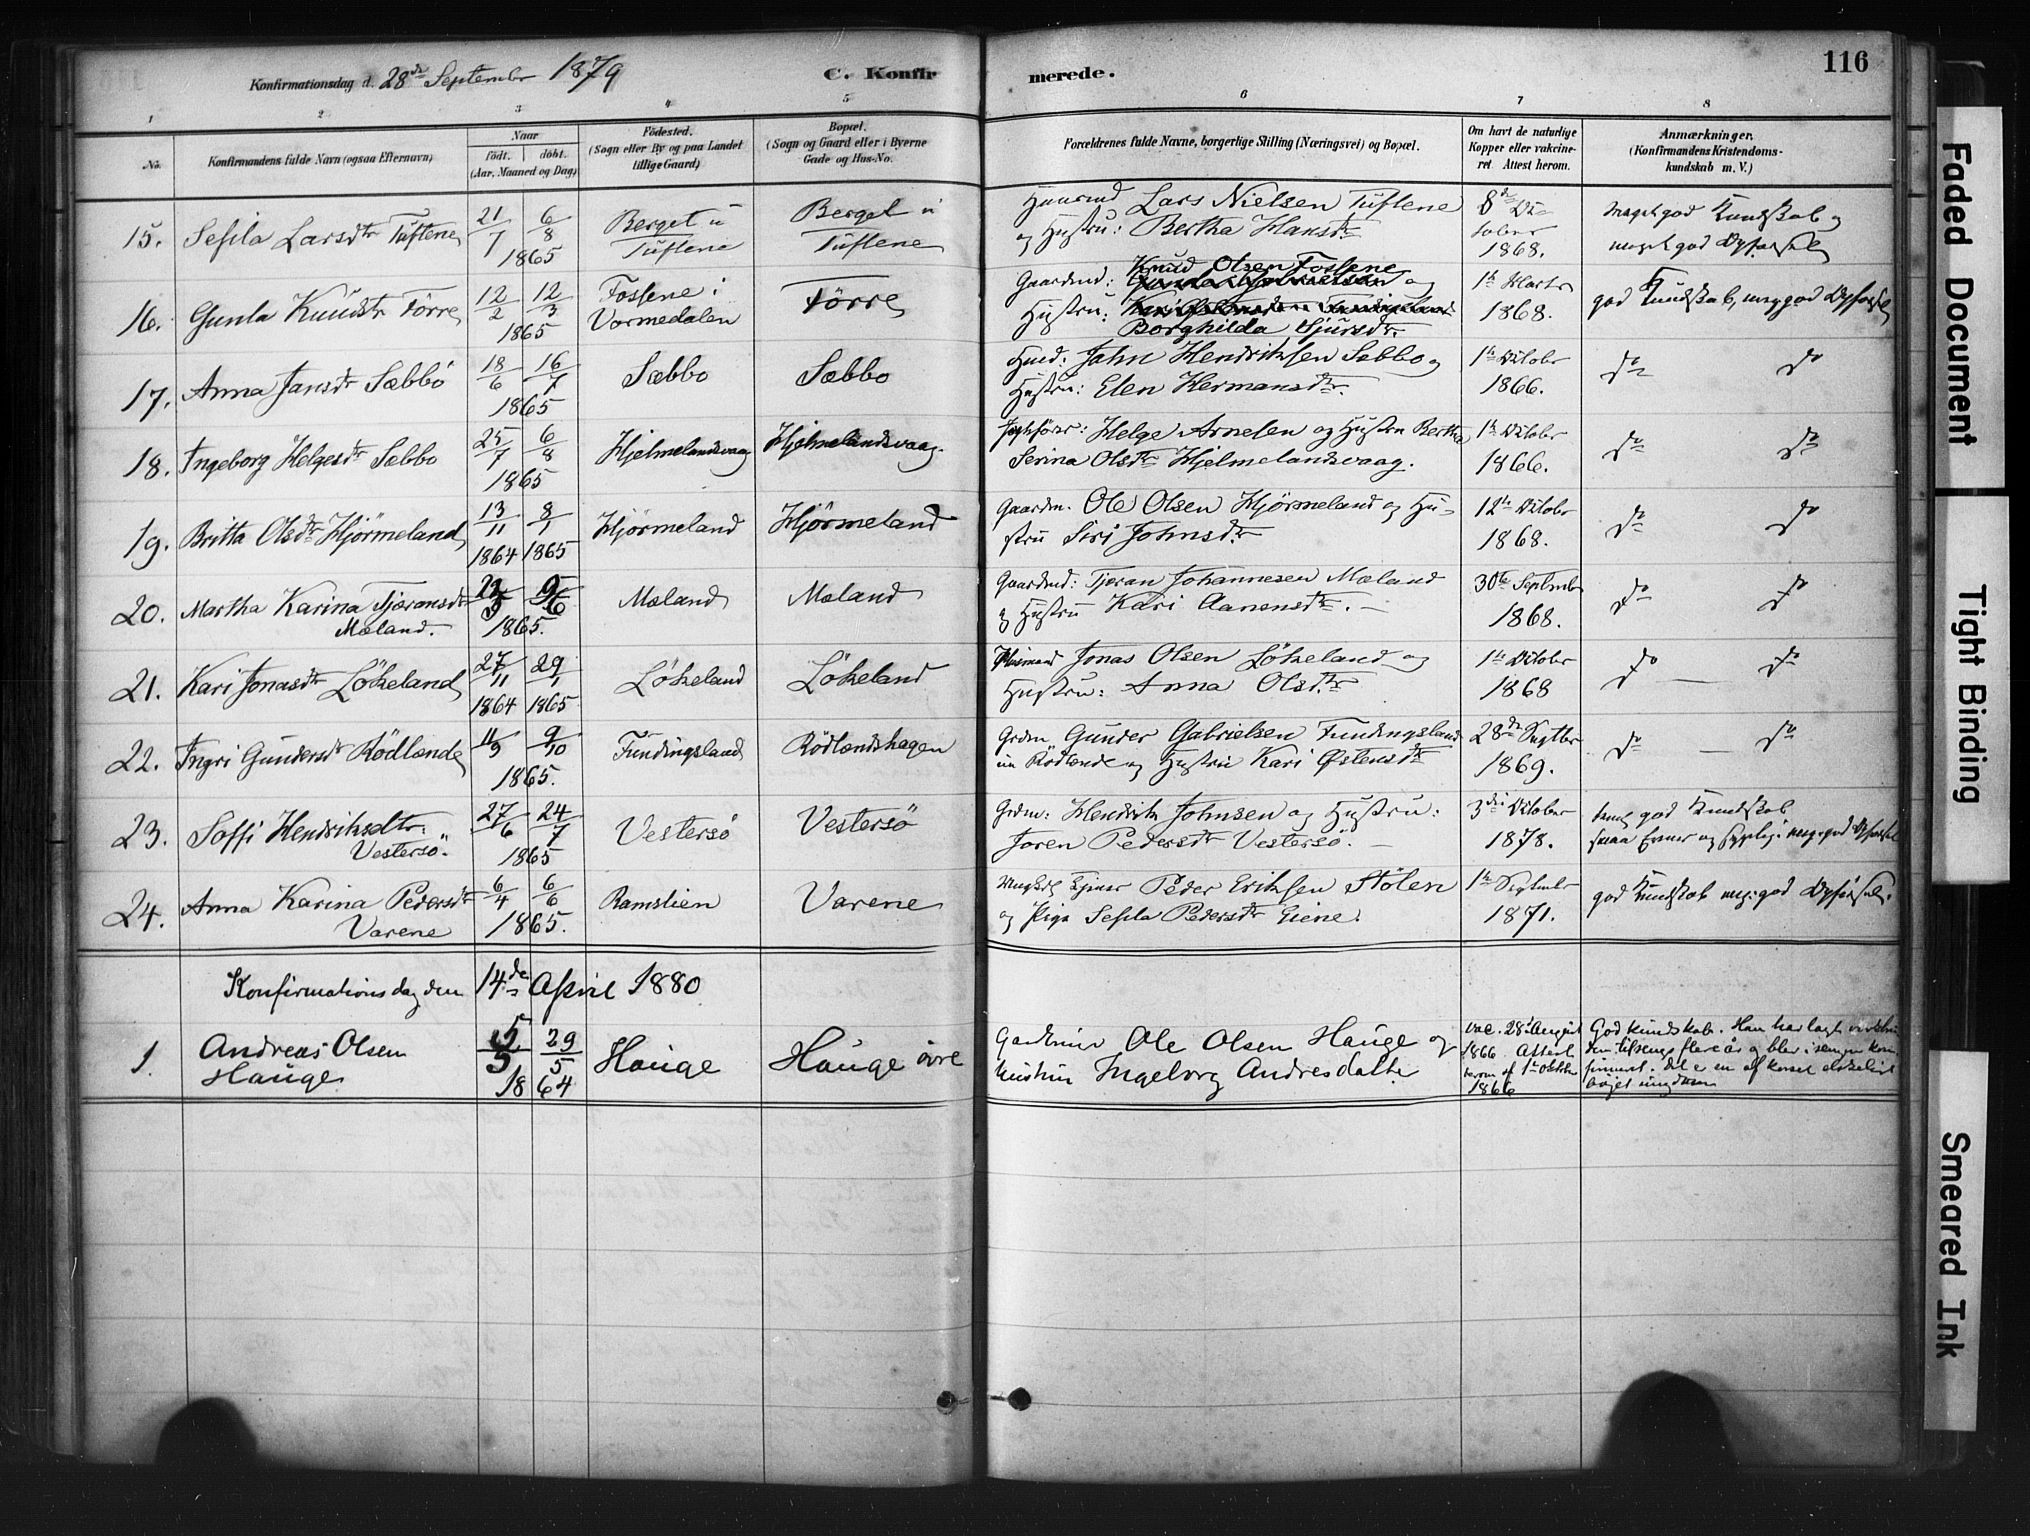 Konfirmationsdag d. 28de September 1879
C. Konfirmerede.
116
1 2 3 4 5 6 7 8
No.
Konfirmandens fulde Navn (ogsaa Efternavn)
Naar
födt. döbt.
(Aar, Maaned og Dag)
Födested.
(Sogn eller By og paa Landet
tillige Gaard)
Bopæl.
(Sogn og Gaard eller i Byerne
Gade og Hus-No.
Forældrenes fulde Navne, borgerlige Stilling (Næringsvei) og Bopæl.
Om havt de naturlige
Kopper eller vakcine-
ret Attest herom.
Anmærkninger.
(Konfirmandens Kristendoms-
kundskab m. V.)
15. Sesila Larsdtr Tuftene 21/7 6/8 1865 Berget u Tuftene Berget u Tuftene
Lars Nielsen Tuftene
og Hustru: Bertha Hansdtr.
8de October 1868.
meget god Kundskab og
meget god
16. Gunla Knudsdtr Törre 12/2 12/3 1865 Fossene i Vormedalen Törre
Gaardmd: Knud Olsen Fossene og
Hustru: Borghilda Sjursdtr.
1te Marts 1868.
god Kundskab, meg. god
17. Anna Jansdtr Sæbbö 18/6 16/7 1865 Sæbbo Sæbbo
Hmd: John Hendriksen Sæbbo og
Hustru: Elen Hermansdtr.
1te October 1866.
do do
18. Ingeborg Helgesdtr Sæbbo 25/7 6/8 1865 Hjelmelandsvaag Hjelmelandsvaag.
Helge Arnesen og Hustru Bertha
Serina Olsdtr Hjelmelandsvaag.
1te October 1866.
do do
19. Britta Olsdtr Hjörmeland 13/11 1864 8/1 1865 Hjörmeland Hjörmeland
Gaardm. Ole Olsen Hjörmeland og Hu-
stru Siri Johnsdtr
12te Octobr 1868.
do do
20. Martha Karina Tjæransdtr
Mæland. 1865. Mæland Mæland
Gaardmd: Tjæran Johannesen Mæland
og Hustru Kari Aanensdtr. —
30te September 1868.
do do
21. Kari Jonasdtr Lökeland 27/11 1864 29/1 1865 Lökeland Lökeland
Husmand Jonas Olsen Lökeland og
Hustru: Anna Olsdtr.
1te October 1868
do — do
22. Ingri Gundersdtr Rödlende 11/9 9/10 1865. Fundingsland Rödlandshagen
Grdm Gunder Gabrielsen Fundingsland
nu Rödlende og Hustru Kari Østensdtr
28de Septbr 1869.
do — do
23. Soffi Hendriksdtr:
Vestersö. 27/6 24/7 1865 Vestersö Vestersö
Grdm: Hendrik Johnsen og Hustru:
Joren Pedersdtr Vestersö. —
3die October 1878.
god Kundskab
meg. god
24. Anna Karina Pedersdtr
Varene 6/4 6/6 1865. Ramslien Varene
Ungkarl Peder Eriksen Stölen
og Pige Sesila Pedersdtr Giene.
1te September 1871.
god Kundskab meg. god
Konfirmationsdag den 14de April 1880
1. Andreas Olsen
Hauge. 5/5 29/5 1864 Hauge Hauge övre
Ole Olsen Hauge og
Hustru Ingeborg Andresdatte
vac. 28 August
1866. Attest
herom af 1te Oktober
1866
God kundskab. Han har lagt
flere år og blev i sengen kon-
firmeret. Det er en af korset